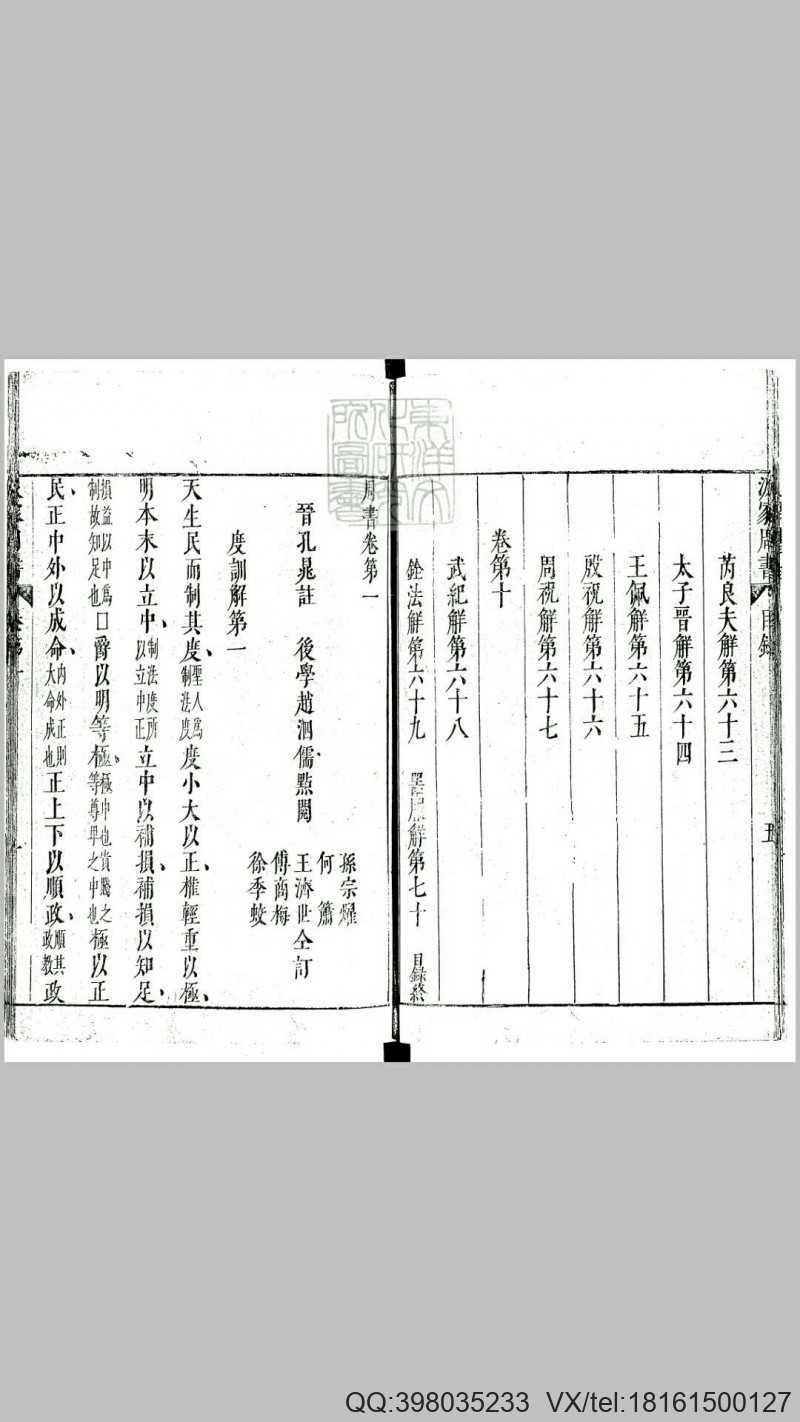 汲冢周書 目錄 五
芮良夫解第六十三
太子晉解第六十四
王佩解第六十五
殷祝解第六十六
周祝解第六十七
卷第十
武紀解第六十八
銓法解第六十九 器服解第七十 目錄終
東洋文化研究所圖書
周書卷第一
晉孔晁註 後學趙泗儒點閱
孫宗燿
何簫
王濟世仝訂
傅商梅
徐季蛟
度訓解第一
天生民而制其度、聖人爲制法度度小大以正、權輕重以極、
明本末以立中、制法度所以立中正立中以補損、補損以知足、
損益以中爲制故知足也口爵以明等極、極中也貴賤之等尊卑之中也極以正
民、正中外以成命、內外正則大命成也正上下以順政、順其政教政
QQ:398035233 VX/tel:18161500127